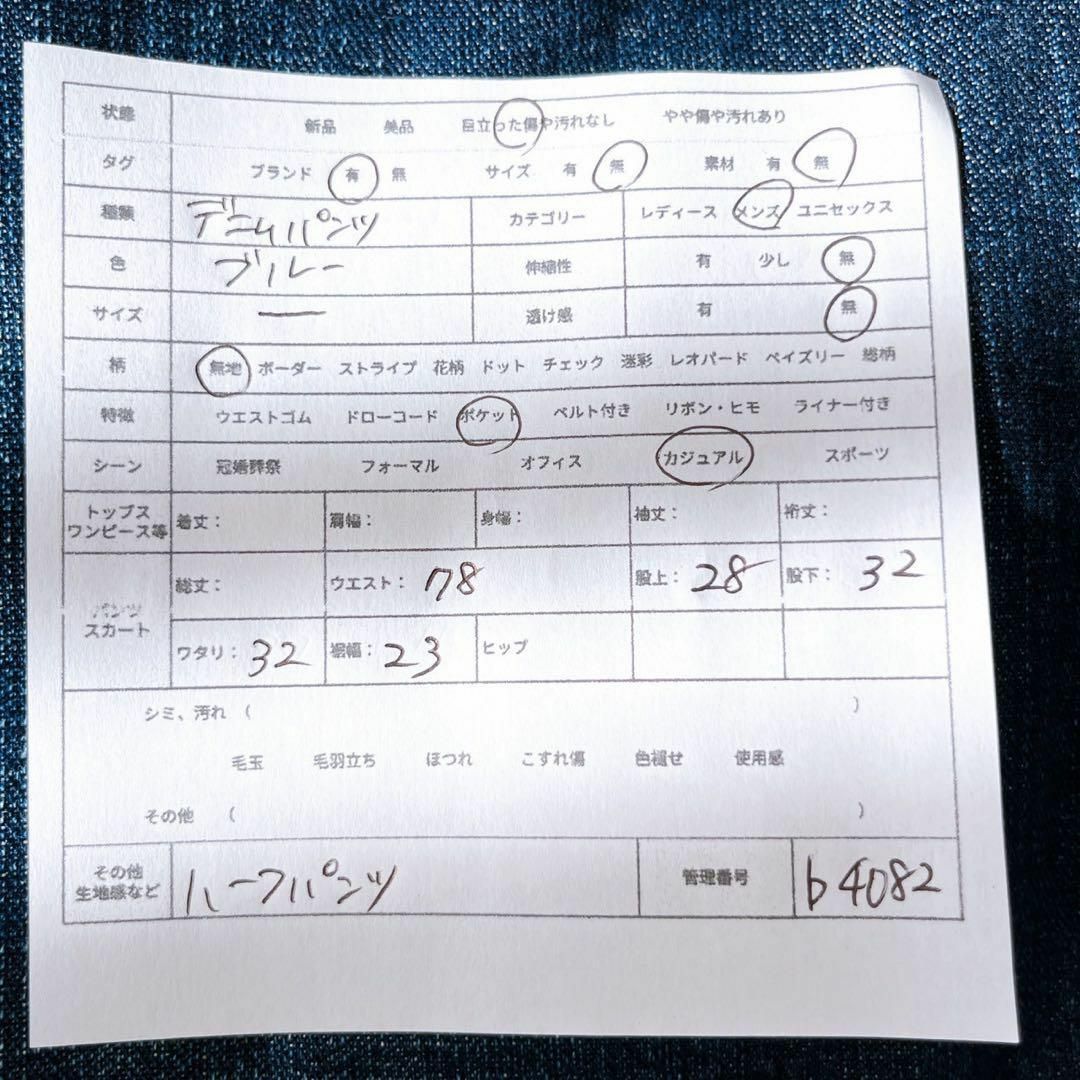 状態 新品 美品 目立った傷や汚れなし やや傷や汚れあり
タグ ブランド 有 無 サイズ 有 無 素材 有 無
種類 デニムパンツ カテゴリー レディース メンズ ユニセックス
色 ブルー 伸縮性 有 少し 無
サイズ ー 透け感 有 無
柄 無地 ボーダー ストライプ 花柄 ドット チェック 迷彩 レオパード ペイズリー 総柄
特徴 ウエストゴム ドローコード ポケット ベルト付き リボン・ヒモ ライナー付き
シーン 冠婚葬祭 フォーマル オフィス カジュアル スポーツ
トップス
ワンピース等 着丈： 肩幅： 身幅： 袖丈： 裄丈：
総丈： ウエスト：78 股上：28 股下：32
パンツ
スカート
ワタリ：32 裾幅：23 ヒップ
シミ、汚れ （ ）
毛玉 毛羽立ち ほつれ こすれ傷 色褪せ 使用感
その他 （ ）
その他
生地感など ハーフパンツ 管理番号 b4082